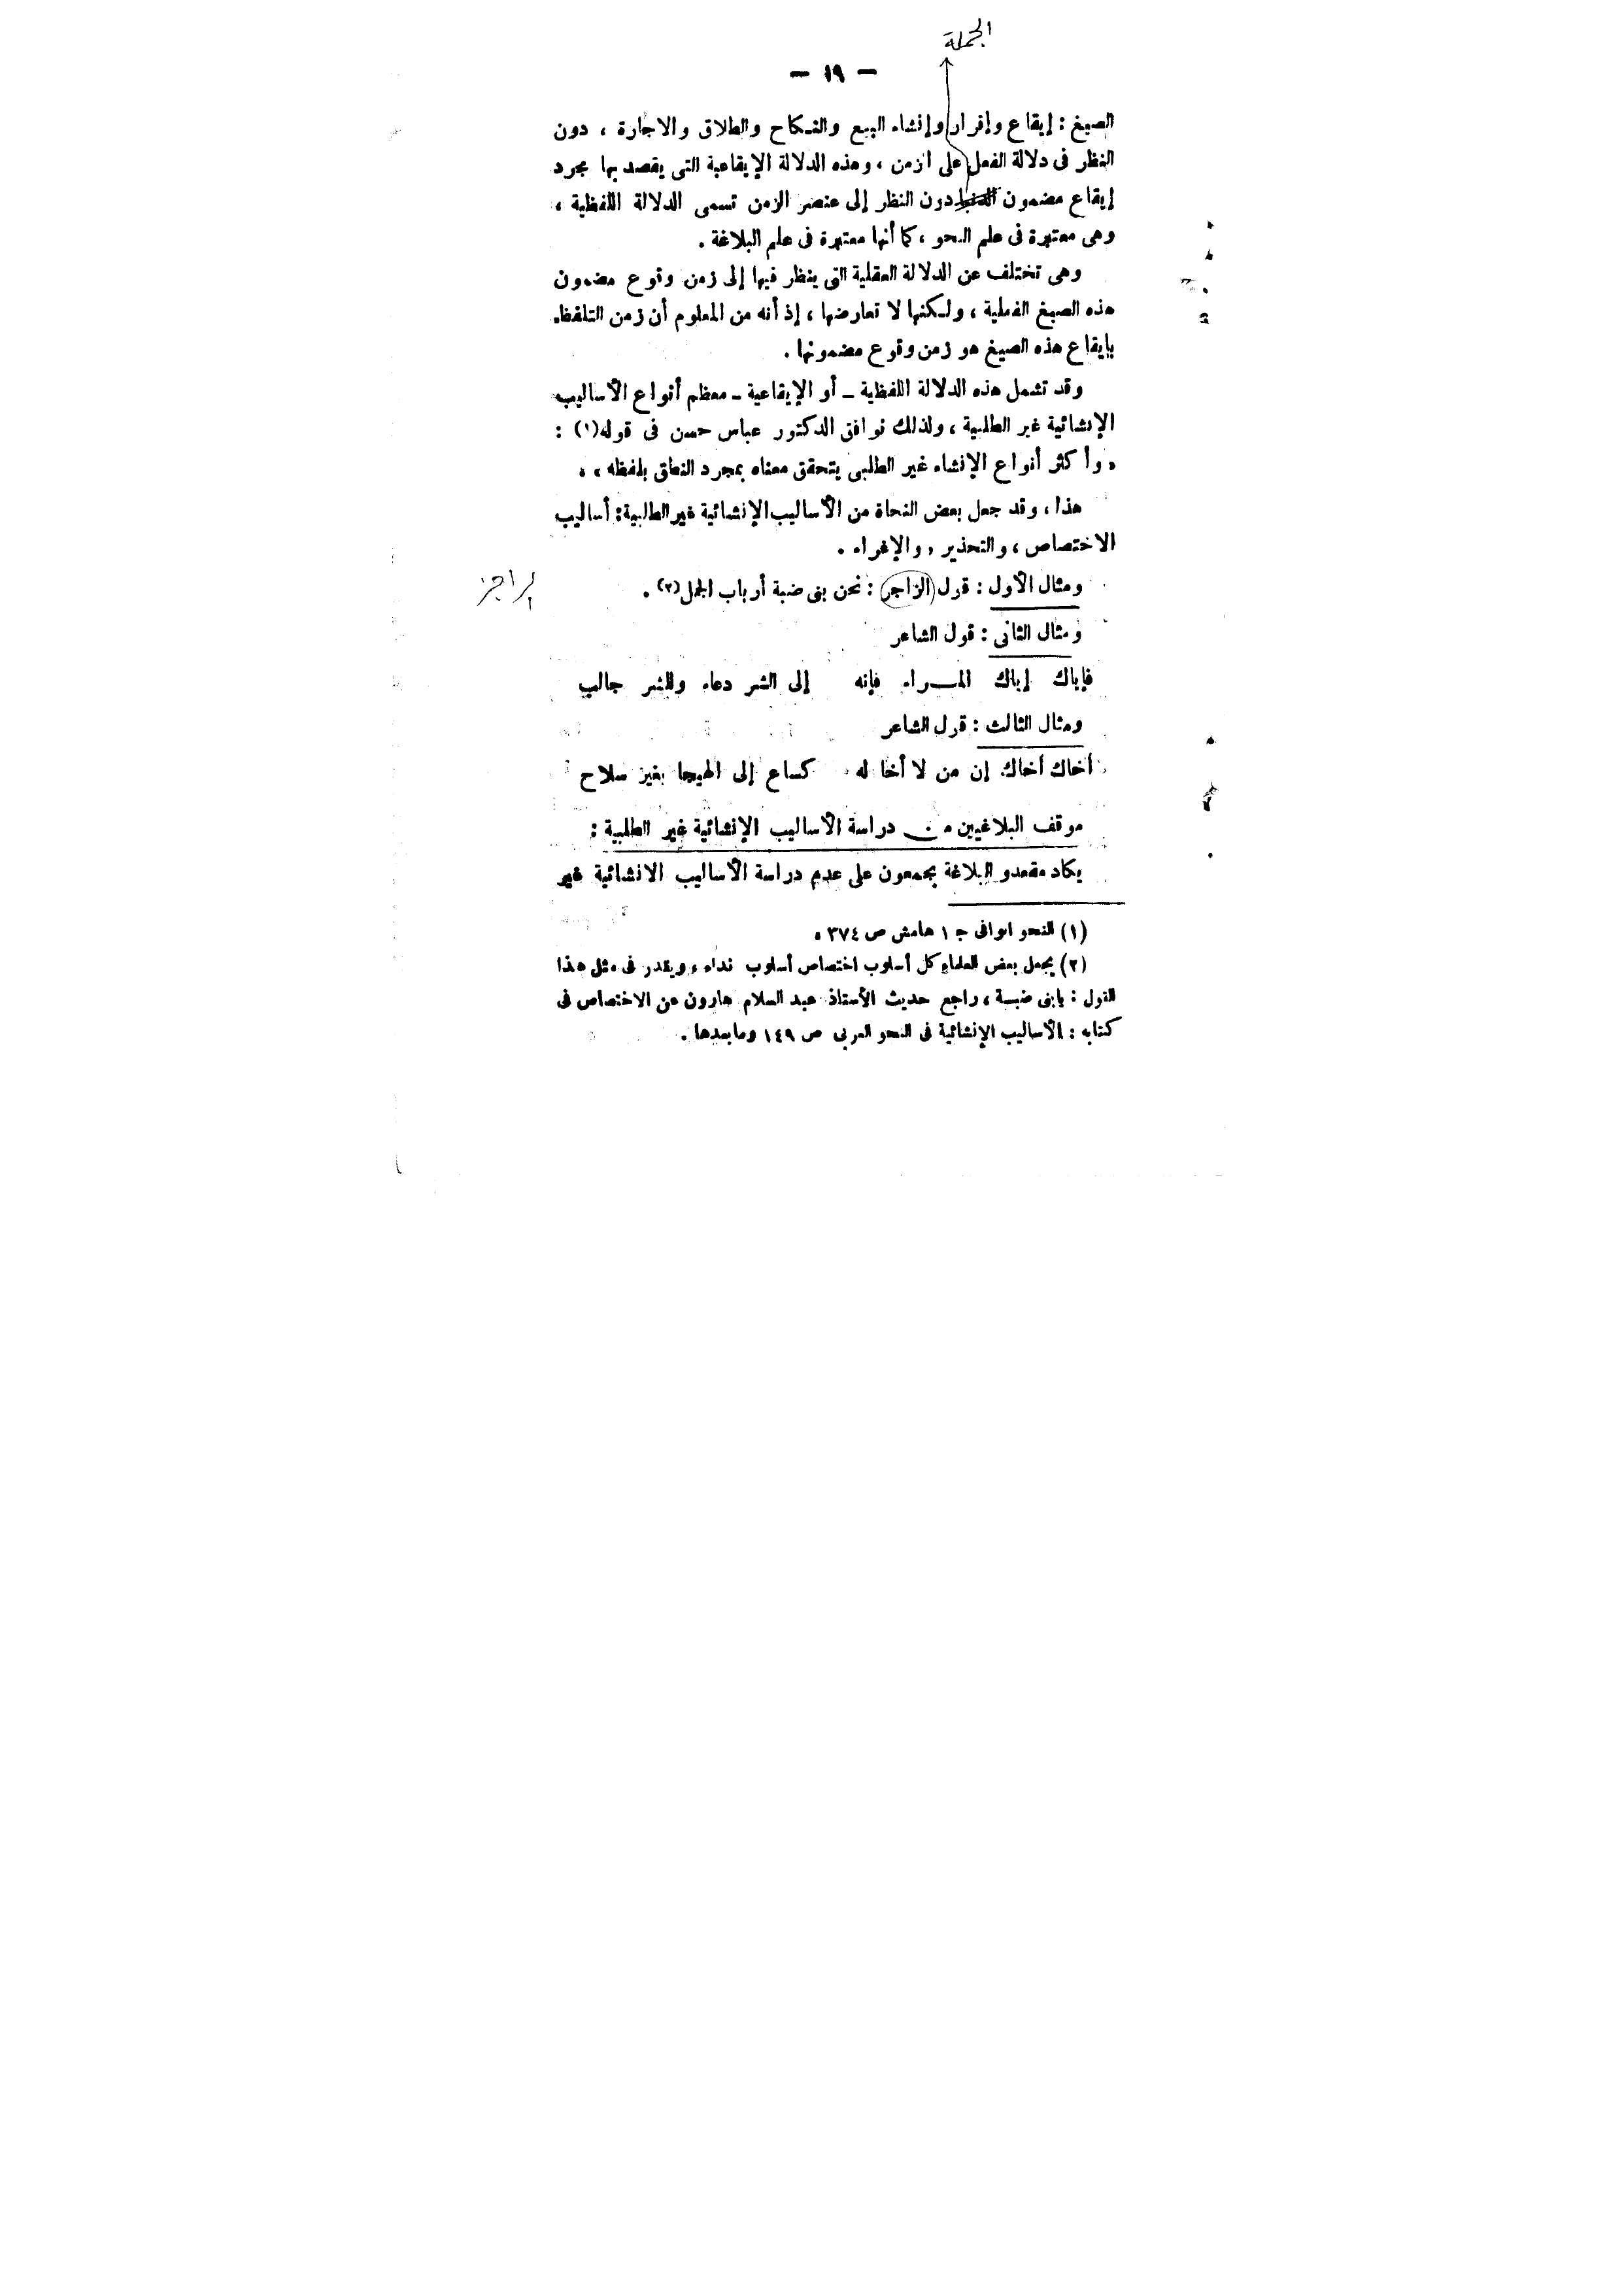 الجملة
— ١٩ —
الصيغ : إيقاع وإقرار وإنشاء البيع والنكاح والطلاق والاجارة ، دون
النظر فى دلالة الفعل على الزمن ، وهذه الدلالة الإيقاعية التى يقصد بها مجرد
إيقاع مضمون دون النظر إلى عنصر الزمن تسمى الدلالة اللفظية ،
وهى معتبرة فى علم النحو ، كما أنها معتبرة فى علم البلاغة .
وهى تختلف عن الدلالة العقلية التى ينظر فيها إلى زمن وقوع مضمون
هذه الصيغ الفعلية ، ولكنها لا تعارضها ، إذ أنه من المعلوم أن زمن التلفظ
بإيقاع هذه الصيغ هو زمن وقوع مضمونها .
وقد تشمل هذه الدلالة اللفظية – أو الإيقاعية – معظم أنواع الأساليب
الإنشائية غير الطلبية ، ولذلك نوافق الدكتور عباس حسن فى قوله(١) :
« وأكثر أنواع الإنشاء غير الطلبى يتحقق معناه بمجرد النطق بلفظه » .
هذا ، وقد جعل بعض النحاة من الأساليب الإنشائية غير الطلبية : أساليب
الاختصاص ، والتحذير ، والإغراء .
ومثال الأول : قول الزاجر : نحن بنى ضبة أرباب الجمل(٢) .
الراجز
ومثال الثانى : قول الشاعر
فإياك إياك المـــراء فإنه إلى الشر دعاء وللشر جالب
ومثال الثالث : قول الشاعر
أخاك أخاك إن من لا أخا له كساع إلى الهيجا بغير سلاح
موقف البلاغيين من دراسة الأساليب الإنشائية غير الطلبية :
يكاد مقعدو البلاغة يجمعون على عدم دراسة الأساليب الانشائية غير
(١) النحو الوافى ج ١ هامش ص ٣٧٤ .
(٢) يجعل بعض العلماء كل أسلوب اختصاص أسلوب نداء ، ويقدر فى مثل هذا
القول : يابنى ضبـة ، راجع حديث الأستاذ عبد السلام هارون عن الاختصاص فى
كتابه : الأساليب الإنشائية فى النحو العربى ص ١٤٩ وما بعدها .